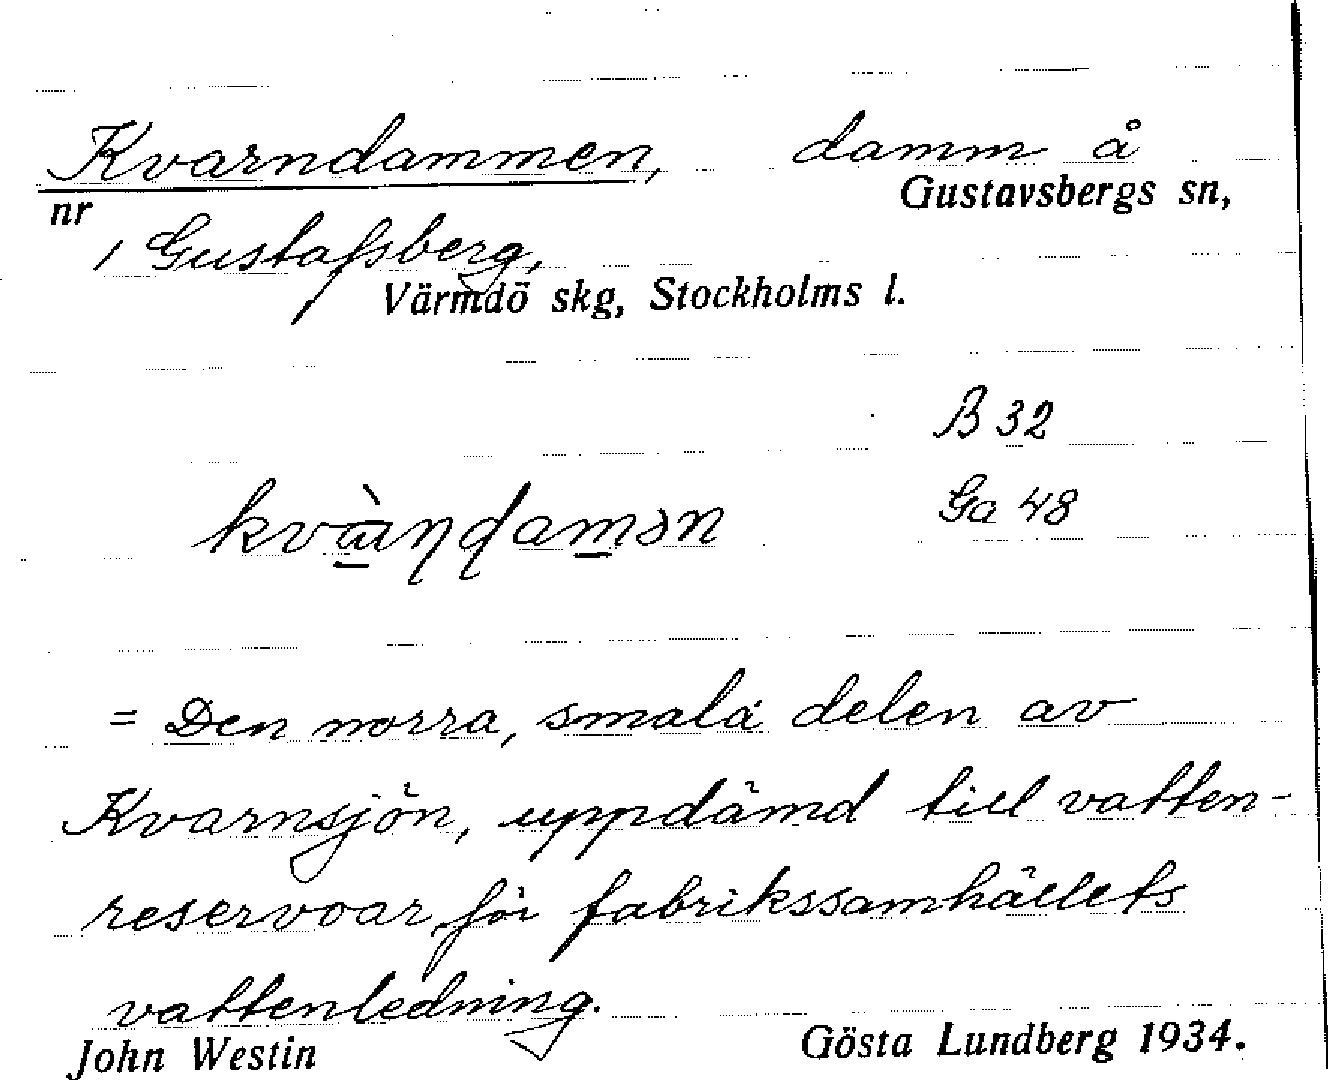 Kvarndammen, damm å
nr Gustavsbergs sn,
1 Gustafsberg,
Värmdö skg, Stockholms l.
B 32
Ga 48
= Den norra, smala delen av
Kvarnsjön, uppdämd till vatten-
reservoar för fabrikssamhällets
vattenledning.
John Westin Gösta Lundberg 1934.